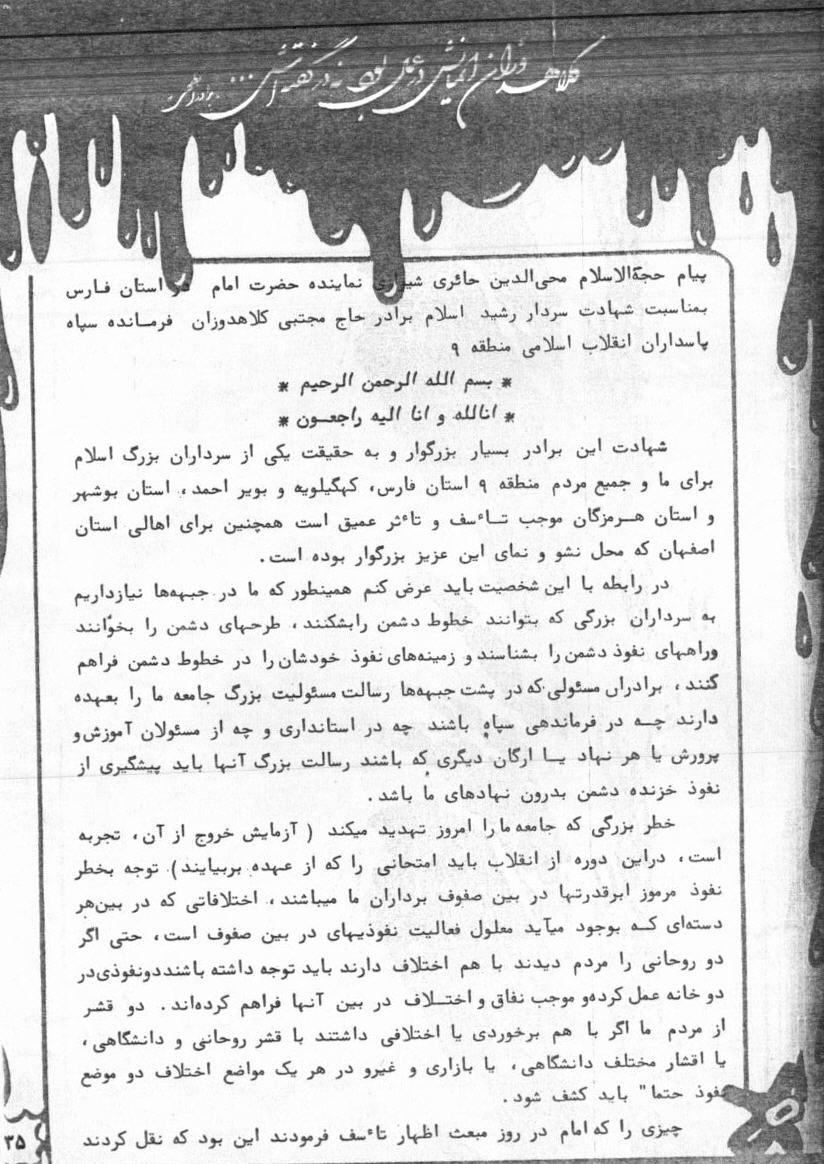 کلاهدوزان ایمانش در عمل بود نه در گفته اش ... برادر
پیام حجةالاسلام محی‌الدین حائری شیرازی نماینده حضرت امام در استان فارس
بمناسبت شهادت سردار رشید اسلام برادر حاج مجتبی کلاهدوزان فرمانده سپاه
پاسداران انقلاب اسلامی منطقه ۹
* بسم الله الرحمن الرحیم *
* انالله و انا الیه راجعون *
شهادت این برادر بسیار بزرگوار و به حقیقت یکی از سرداران بزرگ اسلام
برای ما و جمیع مردم منطقه ۹ استان فارس، کهگیلویه و بویر احمد، استان بوشهر
و استان هرمزگان موجب تأسف و تأثر عمیق است همچنین برای اهالی استان
اصفهان که محل نشو و نمای این عزیز بزرگوار بوده است.
در رابطه با این شخصیت باید عرض کنم همینطور که ما در جبهه‌ها نیازداریم
به سرداران بزرگی که بتوانند خطوط دشمن رابشکنند، طرحهای دشمن را بخوانند
وراههای نفوذ دشمن را بشناسند و زمینه‌های نفوذ خودشان را در خطوط دشمن فراهم
کنند، برادران مسئولی که در پشت جبهه‌ها رسالت مسئولیت بزرگ جامعه ما را بعهده
دارند چه در فرماندهی سپاه باشند چه در استانداری و چه از مسئولان آموزش و
پرورش یا هر نهاد یا ارگان دیگری که باشند رسالت بزرگ آنها باید پیشگیری از
نفوذ خزنده دشمن بدرون نهادهای ما باشد.
خطر بزرگی که جامعه ما را امروز تهدید میکند ( آزمایش خروج از آن، تجربه
است، دراین دوره از انقلاب باید امتحانی را که از عهده بربیایند) توجه بخطر
نفوذ مرموز ابرقدرتها در بین صفوف برداران ما میباشند، اختلافاتی که در بین هر
دسته‌ای که بوجود میآید معلول فعالیت نفوذیهای در بین صفوف است، حتی اگر
دو روحانی را مردم دیدند با هم اختلاف دارند باید توجه داشته باشند دونفوذی در
دو خانه عمل کرده‌و موجب نفاق و اختلاف در بین آنها فراهم کرده‌اند. دو قشر
از مردم ما اگر با هم برخوردی یا اختلافی داشتند با قشر روحانی و دانشگاهی،
یا اقشار مختلف دانشگاهی، یا بازاری و غیرو در هر یک مواضع اختلاف دو موضع
نفوذ حتما" باید کشف شود.
چیزی را که امام در روز مبعث اظهار تأسف فرمودند این بود که نقل کردند
۳۵